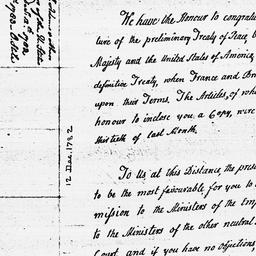 We have the Honour to congratu
ture of the preliminary Treaty of Peace, b
Majesty and the United States of America,
definitive Treaty, when France and Br
upon their Terms. The Articles, of wh
honour to inclose you a Copy, were
thirtieth of last Month.
To Us at this Distance, the prese
to be the most favourable for you to
mission to the Ministers of the Emp
to the Ministers of the other neutral
Court, and if you have no objections,
12 Dec. 1782